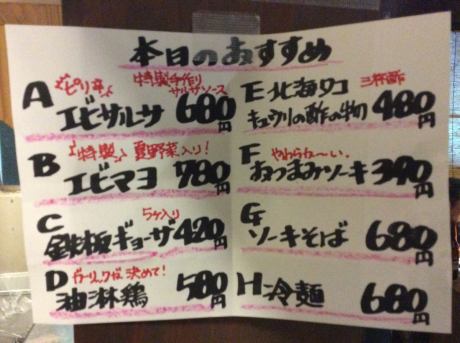 本日のおすすめ
A ピリ辛 特製手作り
サルサソース
エビサルサ 680円
B 特製 夏野菜入り!
エビマヨ 780円
C 5ヶ入り
鉄板ギョーザ 420円
D ガーリックが決めて!
油淋鶏 580円
E 北海タコ 三杯酢
キュウリの酢の物 480円
F やわらな〜い
おつまみソーキ 390円
G
ソーキそば 680円
H 冷麺 680円